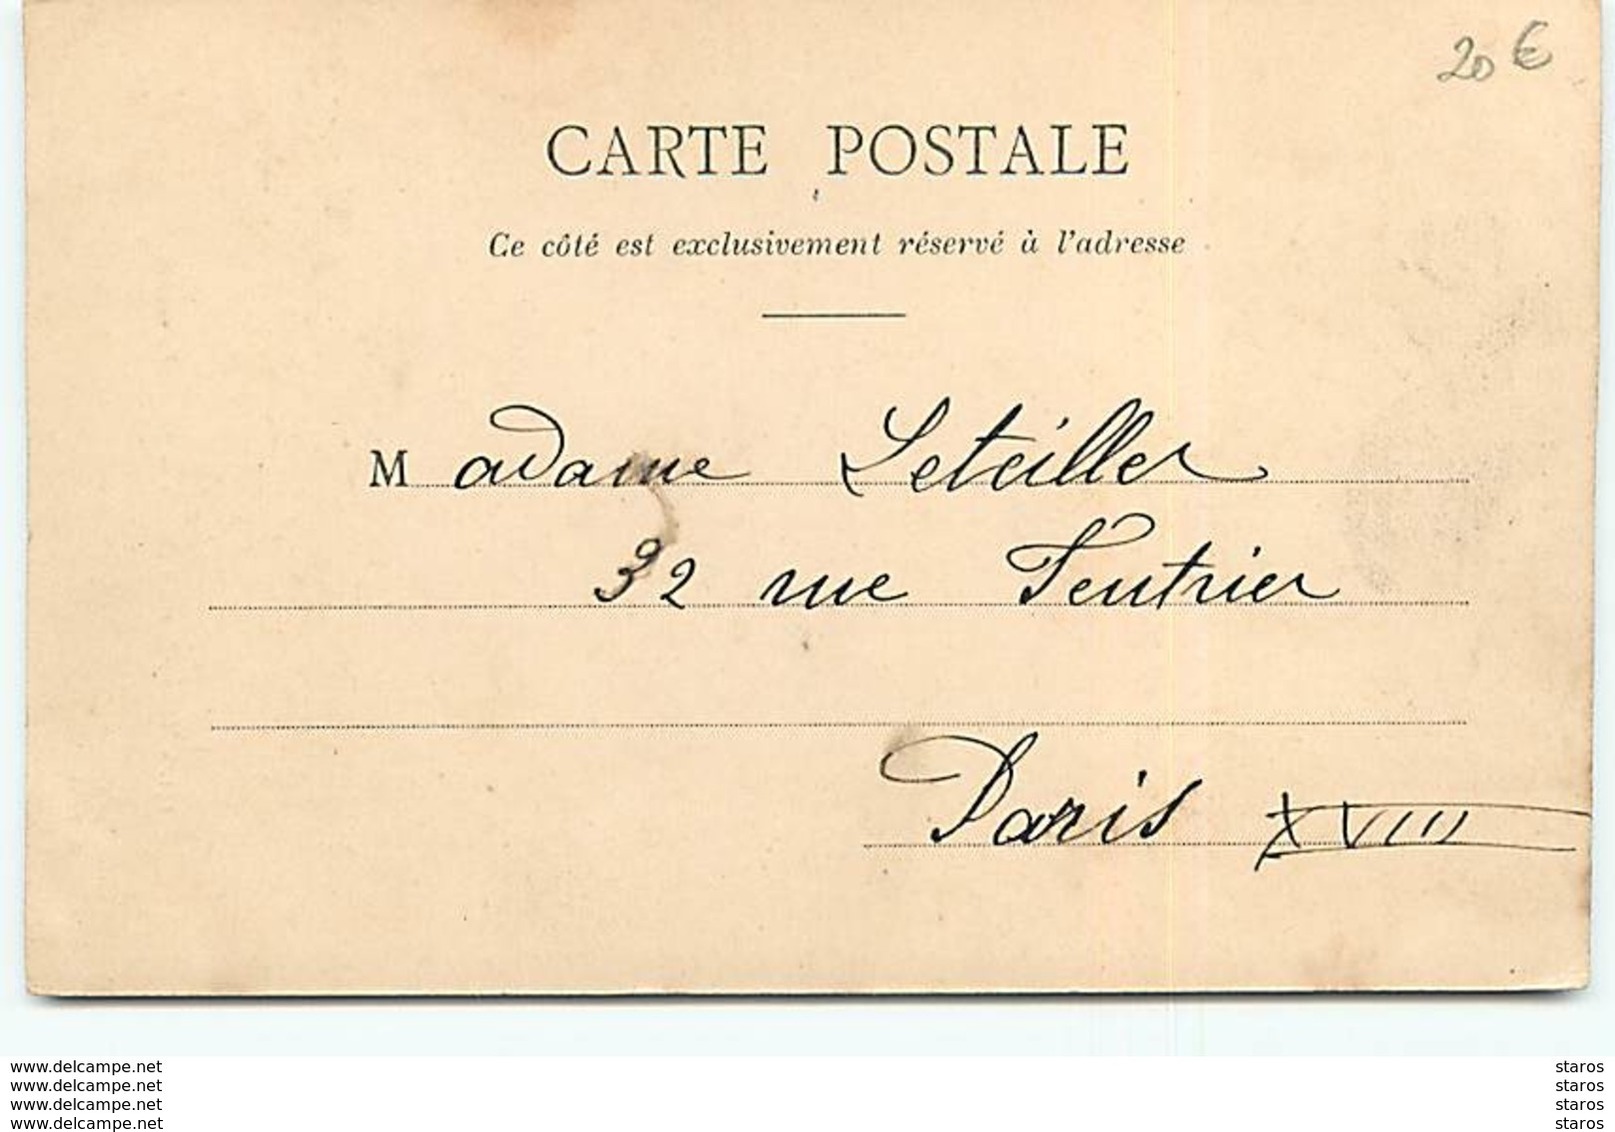 20 €
CARTE POSTALE
Ce côté est exclusivement réservé à l'adresse
Madame Leteiller
32 rue Feutrier
Paris XVIII
www.delcampe.net
www.delcampe.net
www.delcampe.net
www.delcampe.net
staros
staros
staros
staros